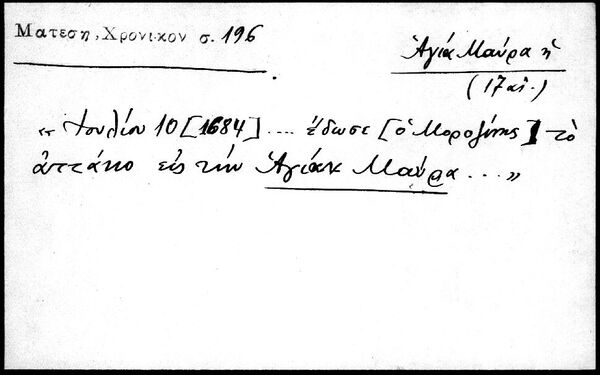 Ματεση, Χρονικον σ. 196
Ἁγία Μαύρα ἡ
(17 αἰ.)
« Ἰουλίου 10 [1684] .... ἔδωσε [ὁ Μοροζίνης] τὸ
ἀττάκο εἰς τὴν Ἁγίαν Μαύρα ... »